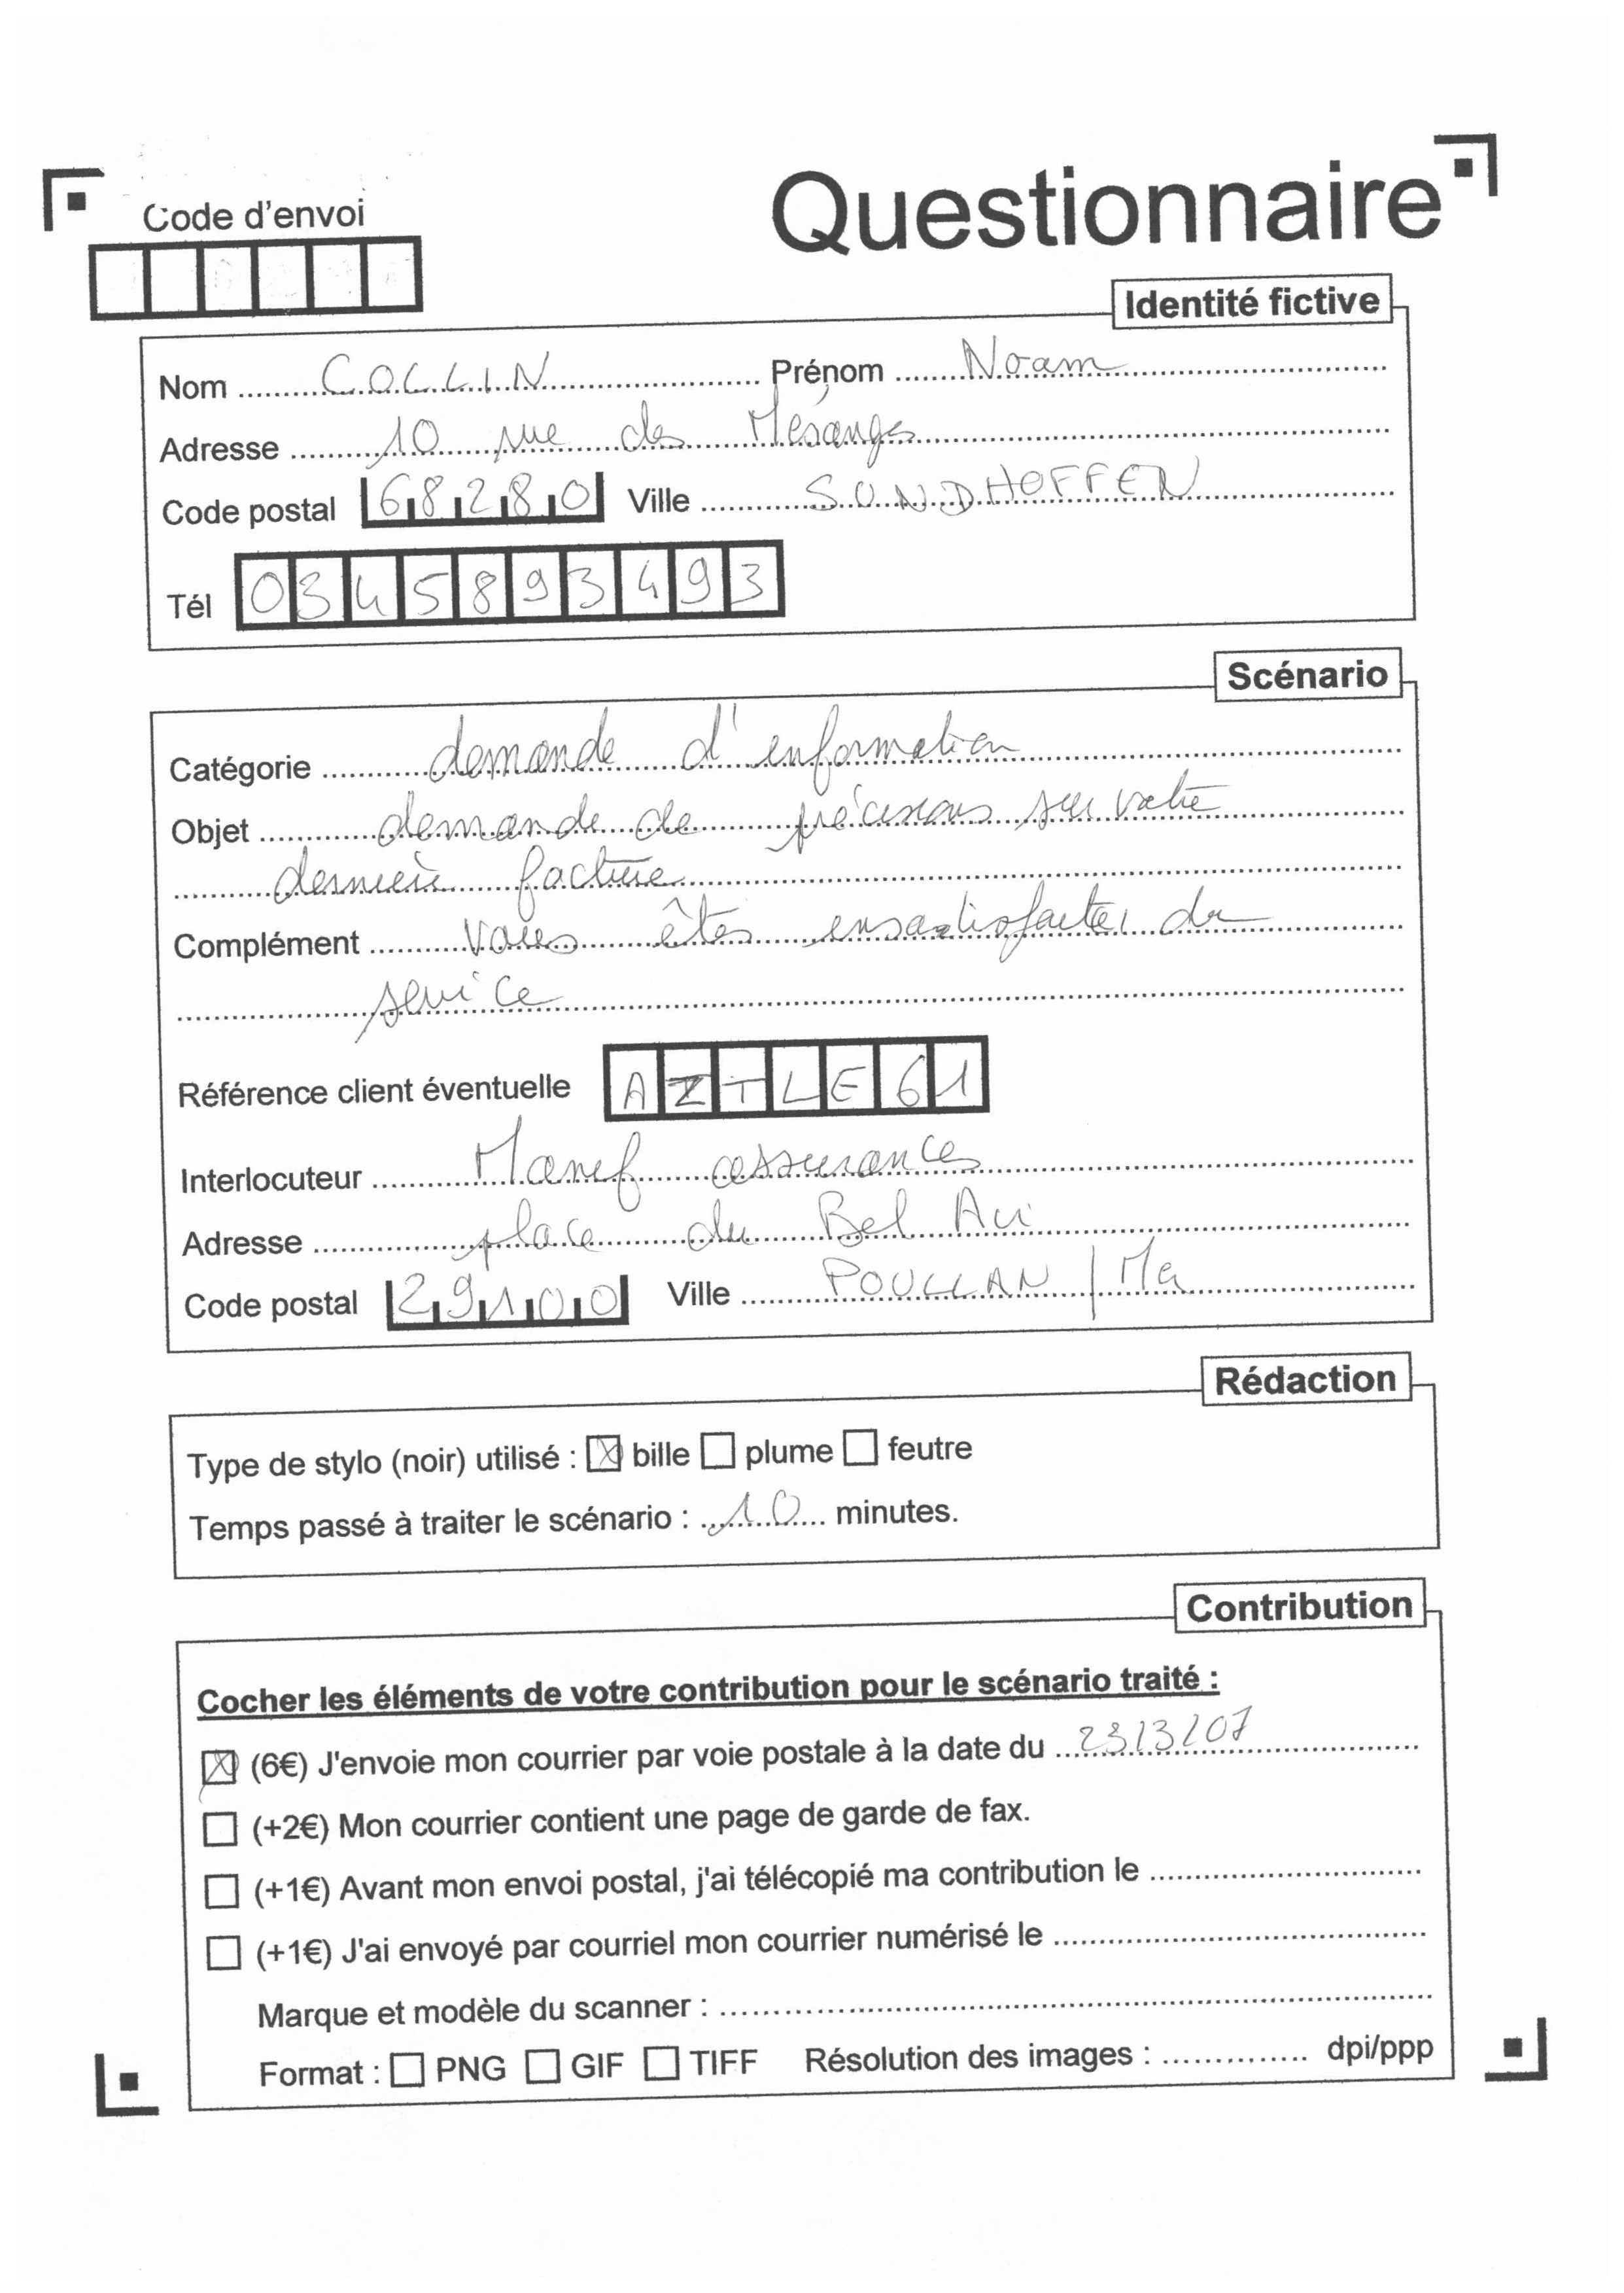 Code d'envoi
Questionnaire
Identité fictive
Nom COLLIN Prénom Noam
Adresse 10 rue des Mésanges
Code postal 68280 Ville SUNDHOFFEN
Tél 0345893493
Scénario
Catégorie demande d'information
Objet demande de précisions sur votre
dernière facture
Complément vous êtes insatisfaite du
service
Référence client éventuelle AZTLE61
Interlocuteur Manef assurances
Adresse place du Bel Air
Code postal 29100 Ville POULLAN / Mer
Rédaction
Type de stylo (noir) utilisé : bille plume feutre
Temps passé à traiter le scénario : 10 minutes.
Contribution
Cocher les éléments de votre contribution pour le scénario traité :
(6€) J'envoie mon courrier par voie postale à la date du 23/3/07
(+2€) Mon courrier contient une page de garde de fax.
(+1€) Avant mon envoi postal, j'ai télécopié ma contribution le
(+1€) J'ai envoyé par courriel mon courrier numérisé le
Marque et modèle du scanner :
Format : PNG GIF TIFF Résolution des images : dpi/ppp